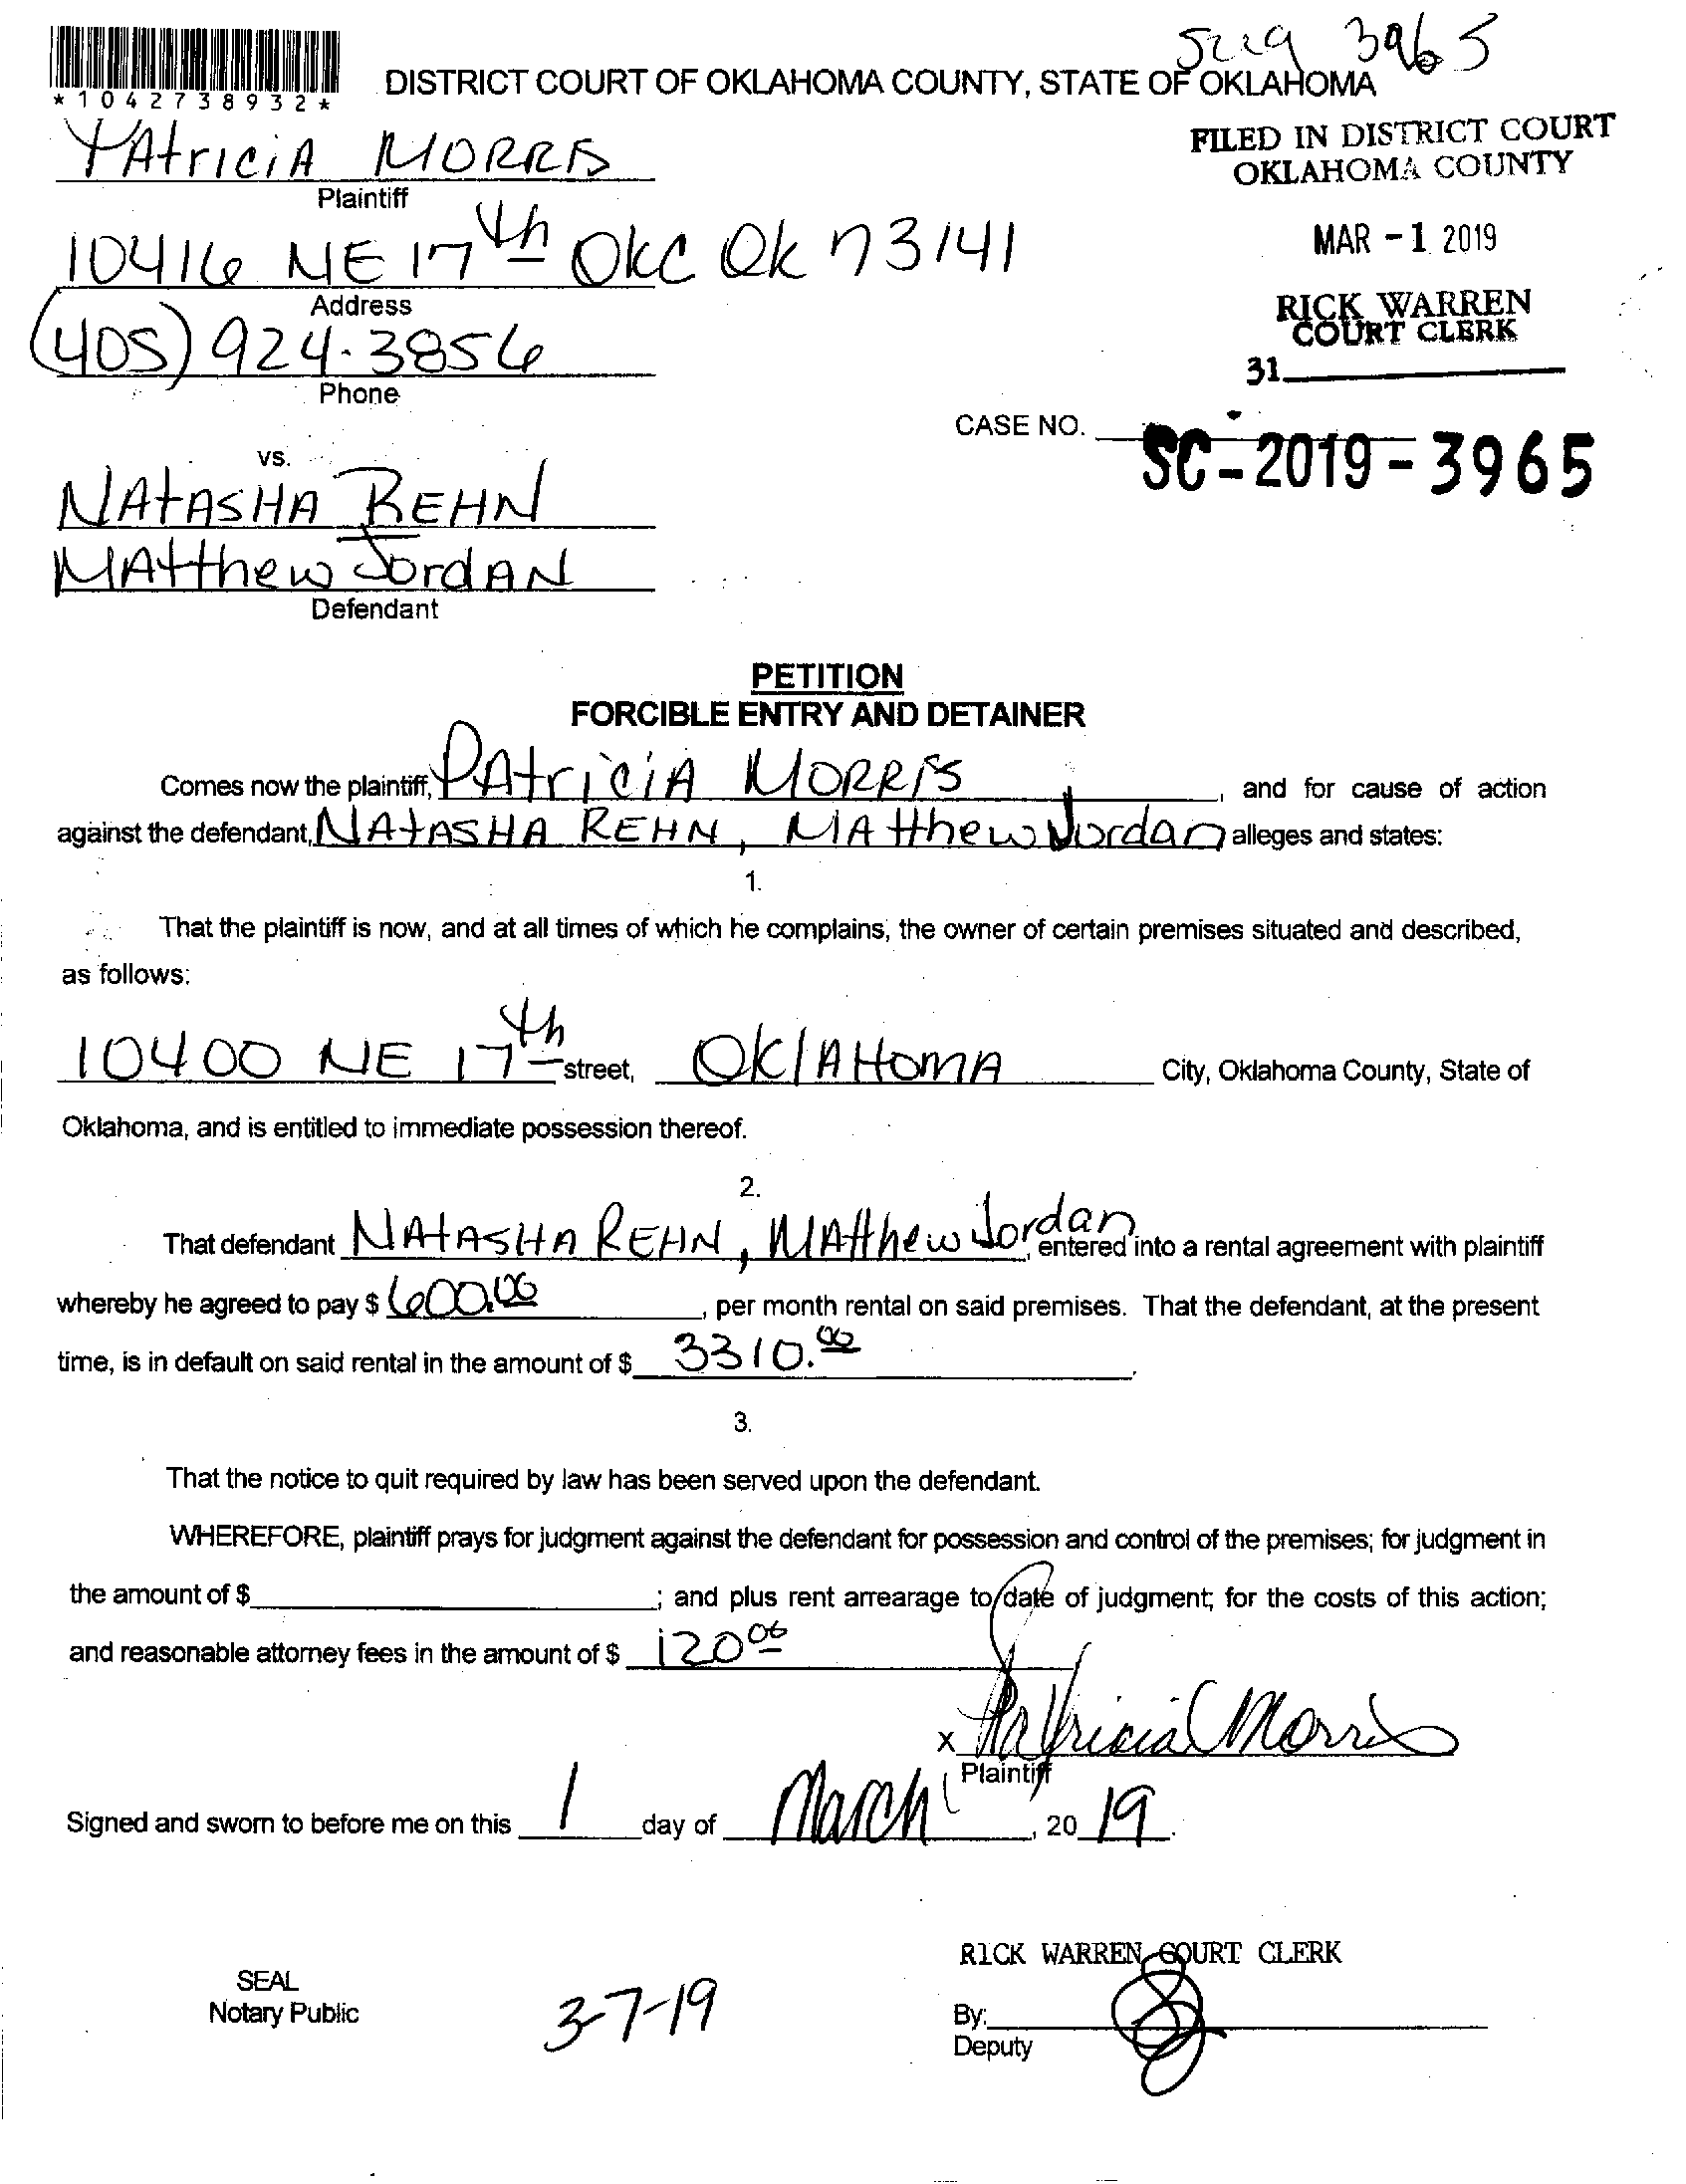 SC19 3965
*1042738932*
DISTRICT COURT OF OKLAHOMA COUNTY, STATE OF OKLAHOMA
PAtriciA MORRIS
Plaintiff
FILED IN DISTRICT COURT
OKLAHOMA COUNTY
10416 NE 17th OKC OK 73141
Address
MAR - 1 2019
(405) 924-3856
Phone
RICK WARREN
COURT CLERK
31
CASE NO. SC - 2019 - 3965
vs.
NAtASHA REHN
MAtthew JordAN
Defendant
PETITION
FORCIBLE ENTRY AND DETAINER
Comes now the plaintiff, PAtriciA MORRIS, and for cause of action
against the defendant, NAtASHA REHN, MAtthew Jordan alleges and states:
1.
That the plaintiff is now, and at all times of which he complains, the owner of certain premises situated and described,
as follows:
10400 NE 17th street, OKlAHomA City, Oklahoma County, State of
Oklahoma, and is entitled to immediate possession thereof.
2.
That defendant NAtASHA REHN, MAtthew Jordan, entered into a rental agreement with plaintiff
whereby he agreed to pay $ 600.00, per month rental on said premises. That the defendant, at the present
time, is in default on said rental in the amount of $ 3310.00.
3.
That the notice to quit required by law has been served upon the defendant.
WHEREFORE, plaintiff prays for judgment against the defendant for possession and control of the premises; for judgment in
the amount of $ ; and plus rent arrearage to date of judgment; for the costs of this action;
and reasonable attorney fees in the amount of $ 120 00
x Patricia Morris
Plaintiff
Signed and sworn to before me on this 1 day of March, 20 19.
RICK WARREN COURT CLERK
SEAL
Notary Public
3-7-19
By:
Deputy